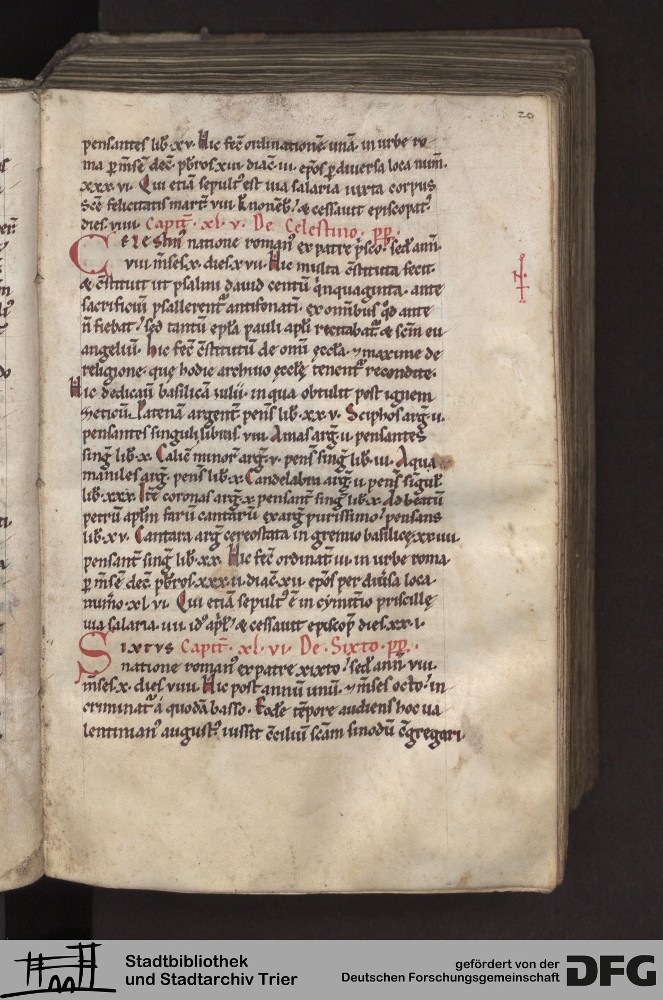 20
pensantes lib̄·xv· Hic fec̄ ordinationē unā in urbe ro
ma p̱ m̄sē dec̄· pb̄ros xiii· diac̄·iii· ep̄os p̱ diuersa loca num̄·
xxx·vi· Qui etiā sepult᷒ est uia salaria iuxta corpus
sc̄e felicitatis mart̄· viii k̄l nouenb̄ʳ / & cessauit episcopat᷒
dies·viiii· Capit̄· xl·v· De Celestino· pp̄·
Celestin᷒ natione roman᷒ ex patre p̱sco· sed̄ ann̄·
viii· m̄ses·x· dies·xvii· Hic multa c̄stituta fecit·
& c̄stituit ut psalmi dauid centū q̇nquaginta· ante
sacrificiū psallerent᷒ antifonati· ex om̄ibus qd̄ ante
n̄ fiebat / sed tantū ep̄la pauli apl̄i recitabat᷒ & sc̄m eu
angeliū· hic fec̄ c̄stitutū de om̄i ęccl̄a· & maxime de
religione· quę hodie archiuo ęccl̄ę tenent᷒ recondite·
Hic dedicauū basilicā iulii· in qua obtulit post ignem
Geticū· Patenā argent̄· pens̄ lib̄·xx·v· Sciphos arḡ·ii·
pensantes singuli libras· viii· Amas arḡ·ii· pensantes
sinḡ lib̄·x· Calicē minor̄ arḡ·v· pens̄ sinḡ lib̄·iii· Aqua
maniles arḡ· pens̄ lib̄·x· Candelabra arḡ·ii· pens̄ singul̄
lib̄·xxx· Itē coronas arḡ·x· pensant̄ sinḡ lib̄·x· Ad beatū
petrū apl̄m farū cantarū ex arḡ purissimo / pensans
lib̄·xv· Cantara arḡ cereostata in gremio basilicę·xxiiii·
pensant̄ sinḡ lib̄·xx· Hic fec̄ ordinat̄· iii· in urbe roma
p̱ m̄sē dec̄· pb̄ros·xxx·ii· diac̄·xii· ep̄os per diũsa loca
num̄o·xl·vi· Qui etiā sepult᷒ ē in cymit̄io priscillę
uia salaria· iiii· id᷒ ap̱l̄ / & cessauit episcop̱ dies·xx·i·
Sixtvs Capit̄· xl·vi· De· Sixto· pp̄·
natione roman᷒ ex patre xixto / sed̄ ann̄· viii·
m̄ses·x· dies·viiii· Hic post annū unū· & m̄ses octo / in
criminat᷒ á quodā basso· Eodē tēpore audiens hoc ua
lentinian᷒ august᷒ iussit c̄ciliū sc̄am sinodū c̄gregari·
Stadtbibliothek
und Stadtarchiv Trier
gefördert von der
Deutschen Forschungsgemeinschaft
DFG